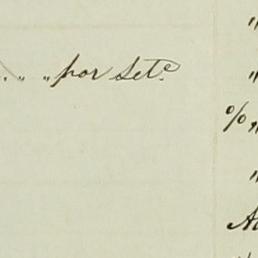 „ „ por Sete
"
"
% „
"